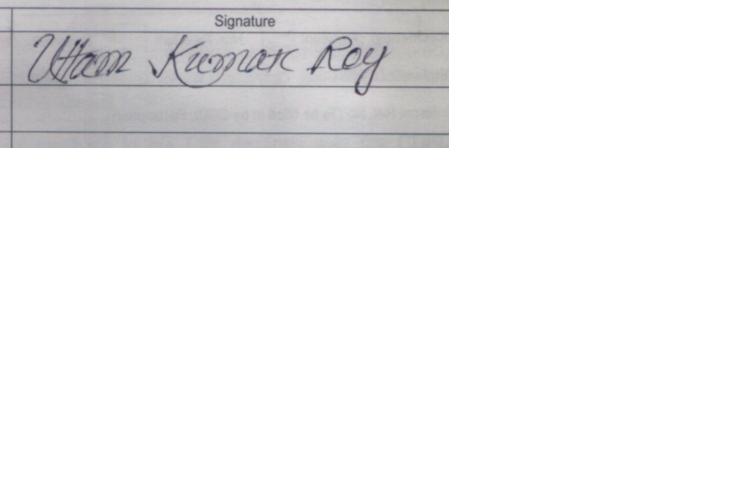 Signature
Uttam Kumar Roy